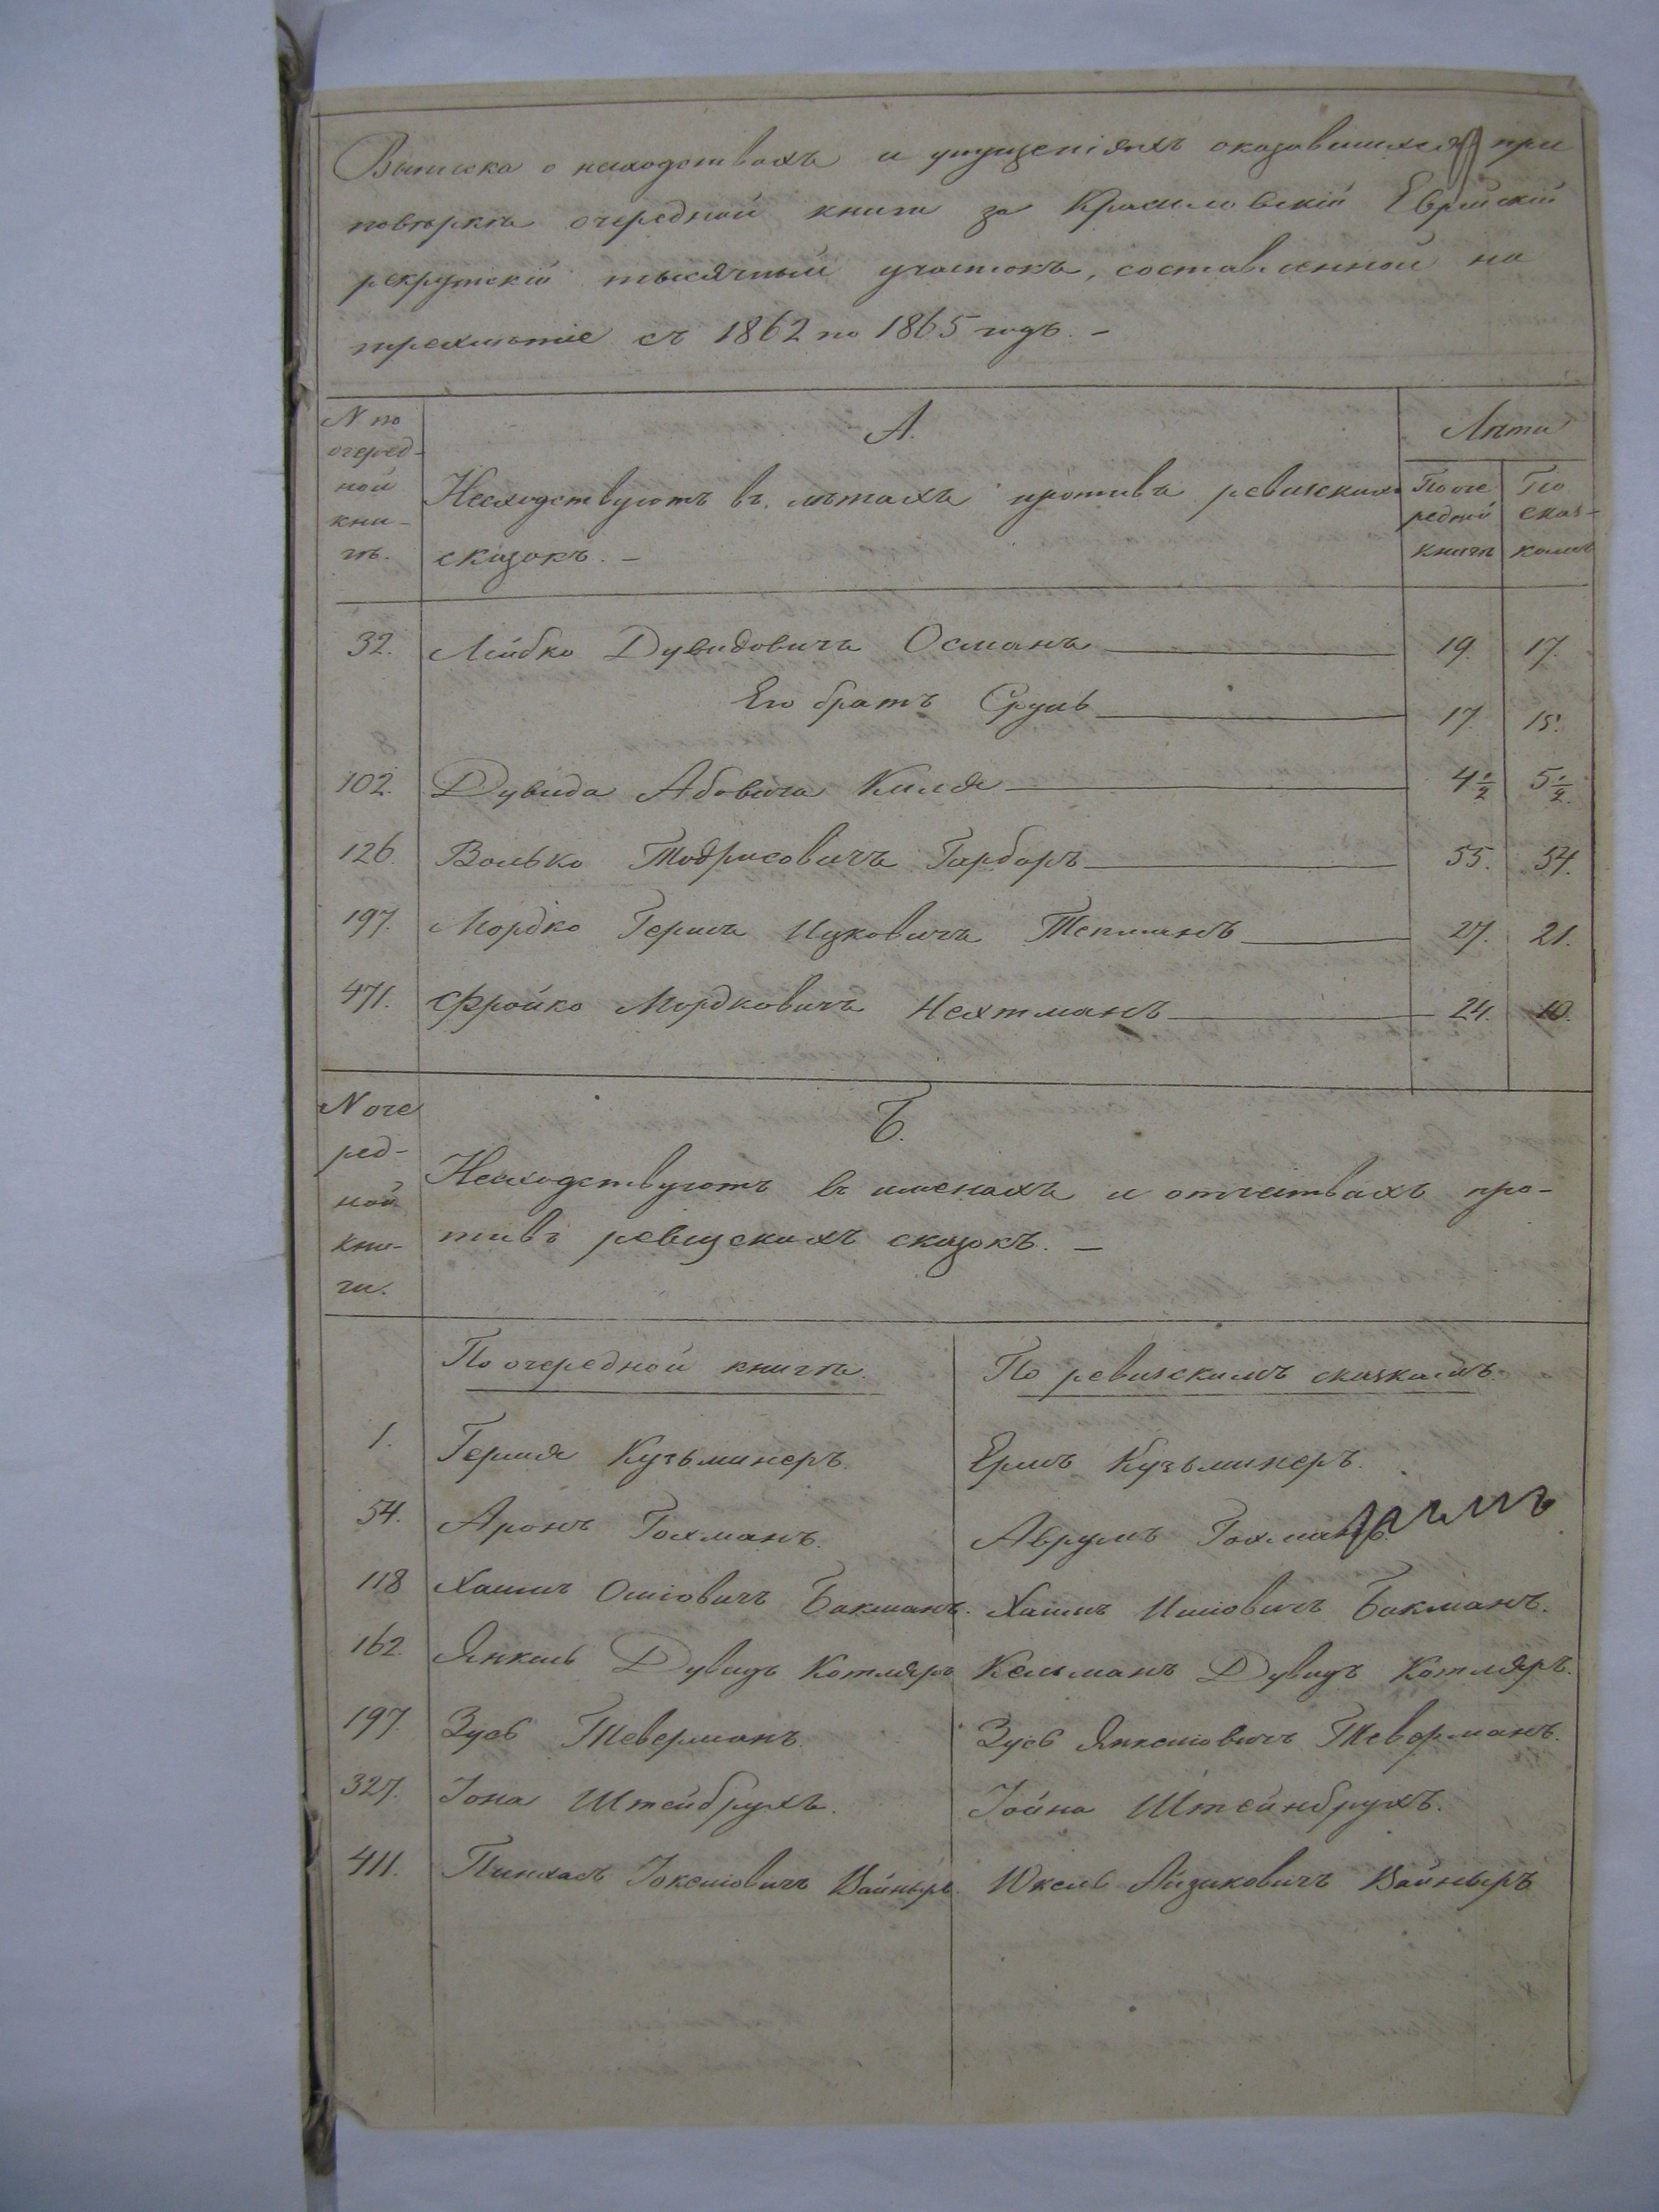 Выписка о несходствахъ и упущеніяхъ оказавшихся при
повѣркѣ очередной книги за Красиловскій Еврейскій
рекрутскій тысячный участокъ, составленной на
трехлѣтіе съ 1862 по 1865 годъ. –
N по очеред-ной кни-гѣ.
А.
Несходствуютъ въ лѣтахъ противъ ревизскихъ
сказокъ. –
Лѣта
По оче редной книгѣ
По сказ-камъ
32. Лейбко Дувидовичъ Османъ 19. 17.
Его братъ Сруль 17. 15.
102. Дувида Абовича Киля 4 1/2 5 1/2.
126. Волько Тодрисовичъ Гарбаръ 55. 54.
197. Мордко Гершъ Ицковичъ 27. 21.
471. Фройко Мордковичъ Нехтманъ 24. 10.
N оче ред-ной кни-ги.
Б.
Несходствуютъ въ именахъ и отчествахъ про-
тивъ ревизскихъ сказокъ. –
По очередной книгѣ. По ревизскимъ сказкамъ.
1. Гершъ Кузьминеръ. Ершъ Кузьминеръ.
54. Аронъ Гохманъ. Аврумъ Гохманъ.
118 Хаимъ Ошіовичъ Бакманъ. Хаимъ Иціовичъ Бакманъ.
162. Янкель Дувидъ Котляръ Кельманъ Дувидъ Котляръ.
197. Зусь Теверманъ. Зусь Янкеліовичъ Теверманъ.
327. Іона Штейбрухъ. Іойна Штейнбрухъ.
411. Пинхасъ Іокеліовичъ Вайныръ. Юкель Айзиковичъ Вайныръ